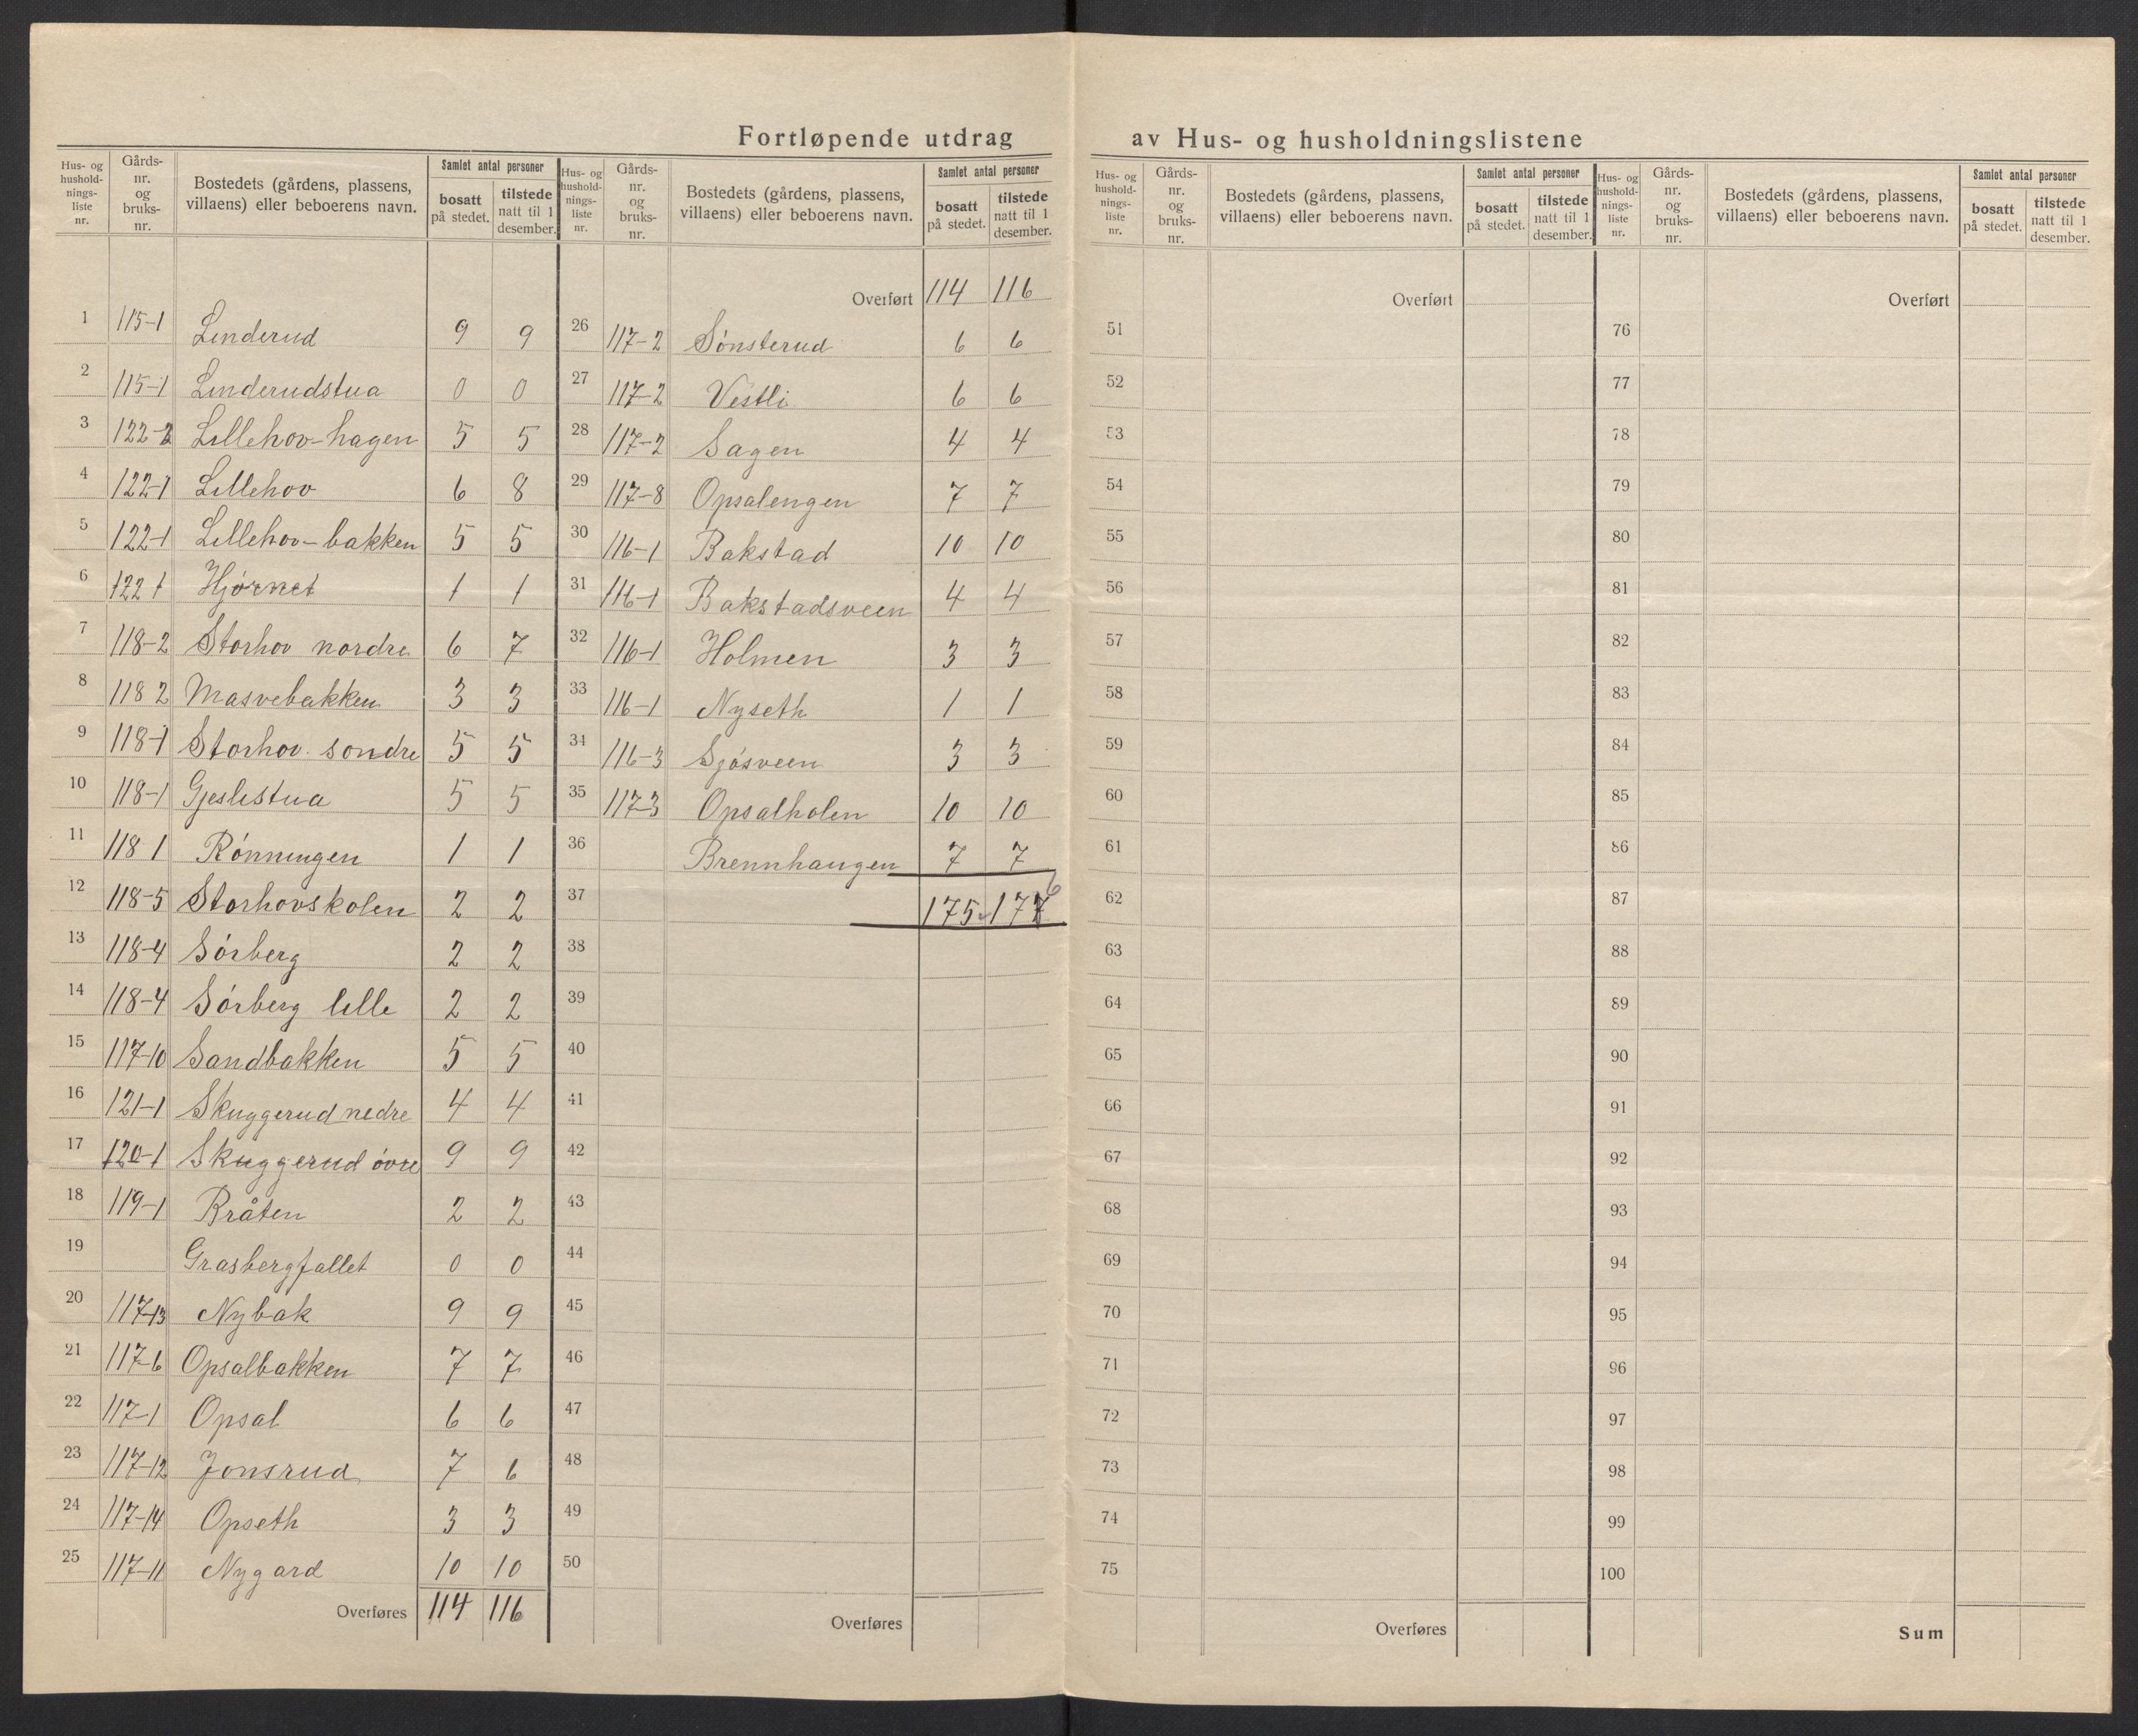 Fortløpende utdrag av Hus- og husholdningslistene
Hus- og hushold- nings- liste nr. | Gårds- nr. og bruks- nr. | Bostedets (gårdens, plassens, villaens) eller beboerens navn. | Samlet antal personer | bosatt på stedet. | tilstede natt til 1 desember.
1 115-1 Linderud 9 9
2 115-1 Linderudstua 0 0
3 122-2 Lillehov-hagen 5 5
4 122-1 Lillehov 6 8
5 122-1 Lillehov-bakken 5 5
6 122 1 Hjørnet 1 1
7 118-2 Storhov nordre 6 7
8 118 2 Masvebakken 3 3
9 118-1 Storhov søndre 5 5
10 118-1 Gjeslestua 5 5
11 118 1 Rønningen 1 1
12 118-5 Storhovskolen 2 2
13 118-4 Sørberg 2 2
14 118-4 Sørberg lille 2 2
15 117-10 Sandbakken 5 5
16 121-1 Skuggerud nedre 4 4
17 120-1 Skuggerud øvre 9 9
18 119-1 Bråten 2 2
19 Grasbergfallet 0 0
20 117-13 Nybak 9 9
21 117-6 Opsalbakken 7 7
22 117-1 Opsal 6 6
23 117-12 Jonsrud 7 6
24 117-14 Opseth 3 3
25 117-11 Nygard 10 10
Overføres 114 116
Hus- og hushold- nings- liste nr. | Gårds- nr. og bruks- nr. | Bostedets (gårdens, plassens, villaens) eller beboerens navn. | Samlet antal personer | bosatt på stedet. | tilstede natt til 1 desember.
Overført 114 116
26 117-2 Sønsterud 6 6
27 117-2 Vestli 6 6
28 117-2 Sagen 4 4
29 117-8 Opsalengen 7 7
30 116-1 Bakstad 10 10
31 116-1 Bakstadsveen 4 4
32 116-1 Holmen 3 3
33 116-1 Nyseth 1 1
34 116-3 Sjøsveen 3 3
35 117-3 Opsalholen 10 10
36 Brennhaugen 7 7
6
37 175 177
38
39
40
41
42
43
44
45
46
47
48
49
50
Overføres
Hus- og hushold- nings- liste nr. | Gårds- nr. og bruks- nr. | Bostedets (gårdens, plassens, villaens) eller beboerens navn. | Samlet antal personer | bosatt på stedet. | tilstede natt til 1 desember.
Overført
51
52
53
54
55
56
57
58
59
60
61
62
63
64
65
66
67
68
69
70
71
72
73
74
75
Overføres
Hus- og hushold- nings- liste nr. | Gårds- nr. og bruks- nr. | Bostedets (gårdens, plassens, villaens) eller beboerens navn. | Samlet antal personer | bosatt på stedet. | tilstede natt til 1 desember.
Overført
76
77
78
79
80
81
82
83
84
85
86
87
88
89
90
91
92
93
94
95
96
97
98
99
100
Sum